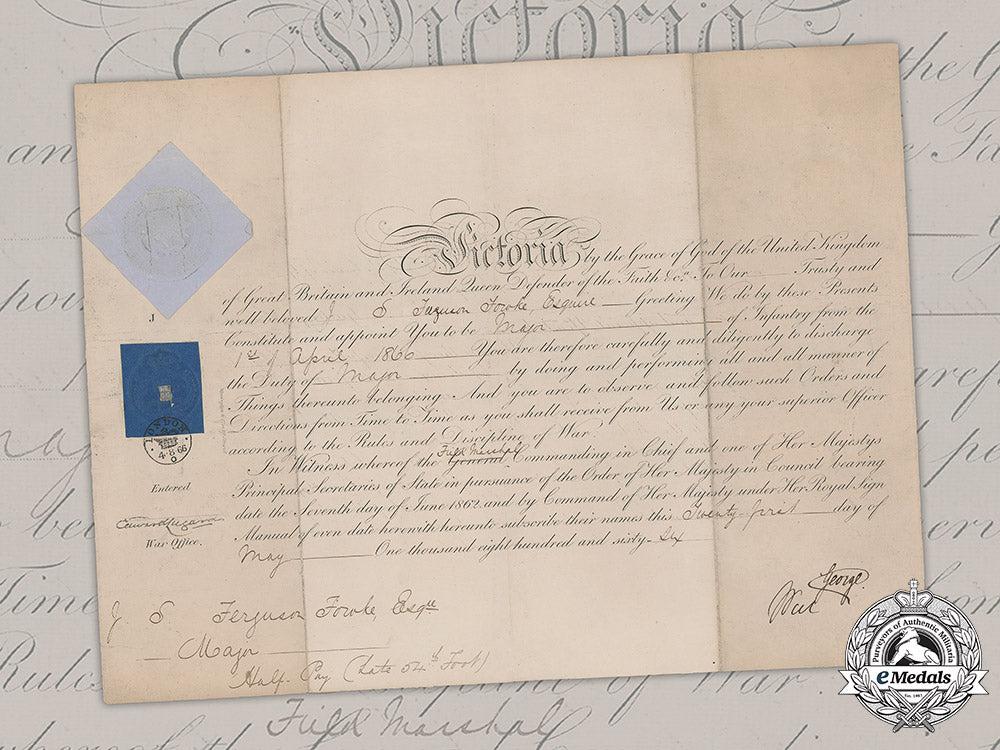 Victoria by the Grace of God of the United Kingdom
of Great Britain and Ireland Queen Defender of the Faith &c. To Our Trusty and
well beloved J S Ferguson Fowke, Esquire Greeting We do by these Presents
Constitute and appoint You to be Major of Infantry from the
1st of April 1866 You are therefore carefully and diligently to discharge
the Duty of Major by doing and performing all and all manner of
Things thereunto belonging And you are to observe and follow such Orders and
Directions from Time to Time as you shall receive from Us or any your superior Officer
according to the Rules and Discipline of War.
Field Marshal
In Witness whereof the General Commanding in Chief and one of Her Majestys
Principal Secretaries of State in pursuance of the Order of Her Majesty in Council bearing
date the Seventh day of June 1862 and by Command of Her Majesty under Her Royal Sign
Manual of even date herewith hereunto subscribe their names this Twenty-first day of
May One thousand eight hundred and sixty-six
George
J
LONDON
4·8·66
Entered
War Office.
J S Ferguson Fowke, Esqre
Major
Half-Pay (Late 54th Foot)
Purveyors of Authentic Militaria
eMedals
Est. 1967
Victoria
the G
an
Time
Rules
of War
Field Marshal
whereof the